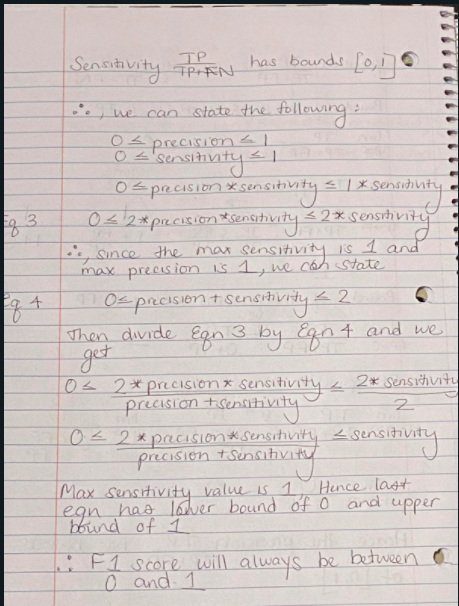 Sensitivity TP/TP+FN has bounds [0,1]
∴, we can state the following:
0 ≤ precision ≤ 1
0 ≤ sensitivity ≤ 1
0 ≤ precision * sensitivity ≤ 1 * sensitivity
Eq 3 0 ≤ 2*precision*sensitivity ≤ 2* sensitivity
∴, since the max sensitivity is 1 and
max precision is 1, we can state
Eq 4 0 ≤ precision + sensitivity ≤ 2
Then divide Eqn 3 by Eqn 4 and we
get
0 ≤ 2*precision* sensitivity / precision + sensitivity ≤ 2* sensitivity / 2
0 ≤ 2 * precision*sensitivity / precision + sensitivity ≤ sensitivity
Max sensitivity value is 1. Hence last
eqn has lower bound of 0 and upper
bound of 1
∴ F1 score will always be between
0 and 1